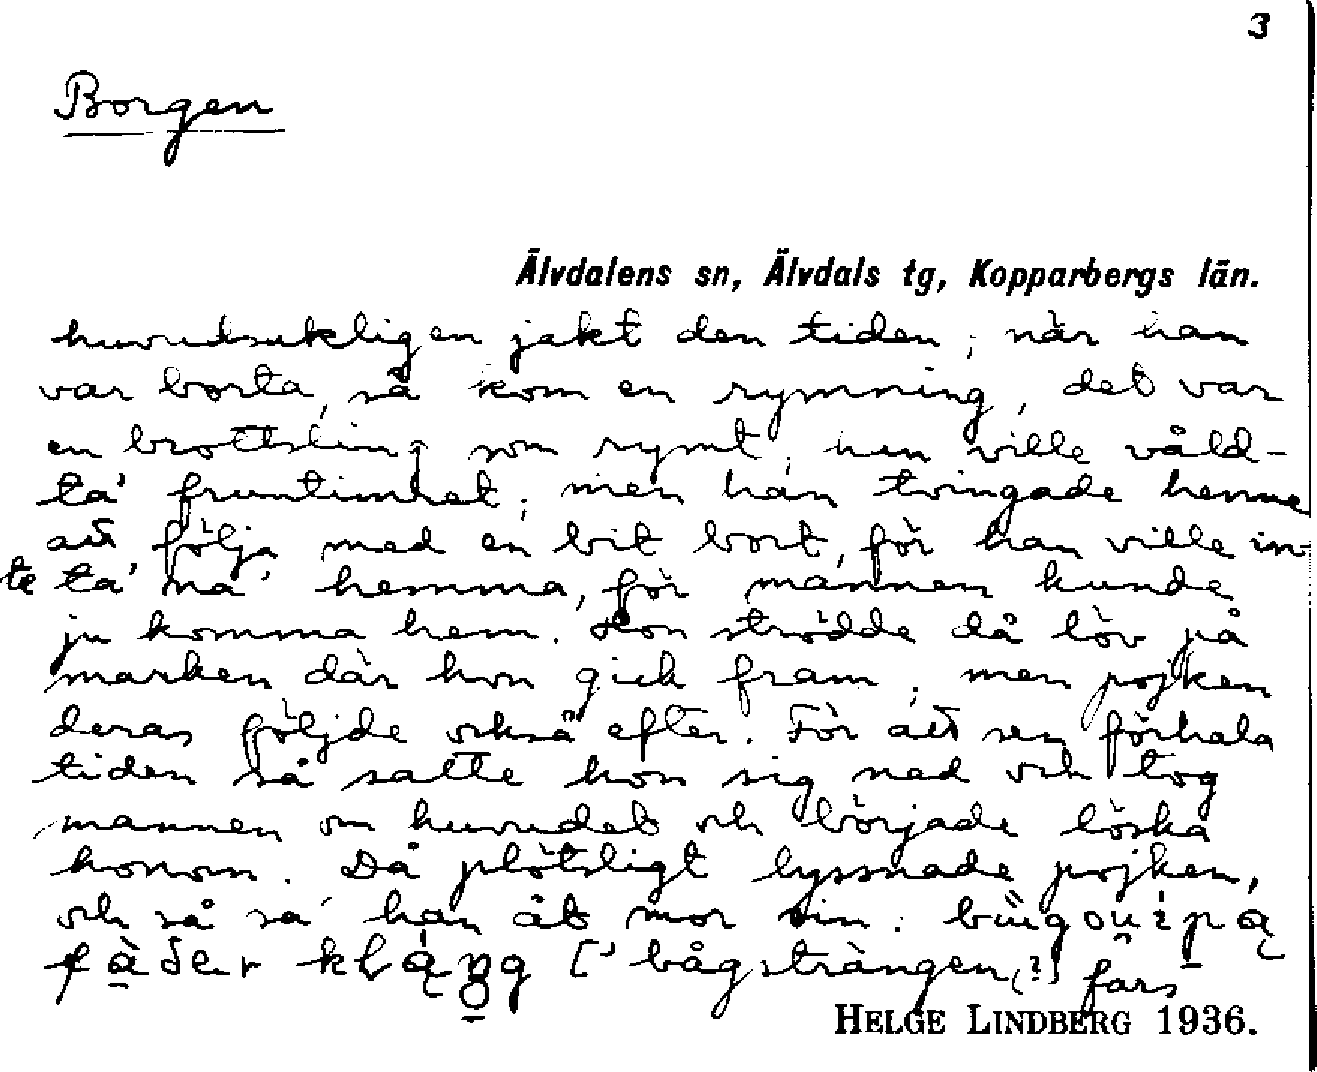 3
Borgen
Älvdalens sn, Älvdals tg, Kopparbergs län.
huvudsakligen jakt den tiden; när han
var borta, så kom en rymning, det var
en brottsling som rymt, han ville våld-
ta' fruntimret; men han tvingade henne
att följa med en bit bort, för han ville in-
te ta' na' hemma, för mannen kunde
ju komma hem. Hon strödde då löv på
marken där hon gick fram; men pojken
deras följde också efter. För att sen förhala
tiden så satte hon sig ned och tog
mannen om huvudet och började löska
honom. Då plötsligt lyssnade pojken,
och så sa' han åt mor sin:
['bågsträngen(?) fars
HELGE LINDBERG 1936.